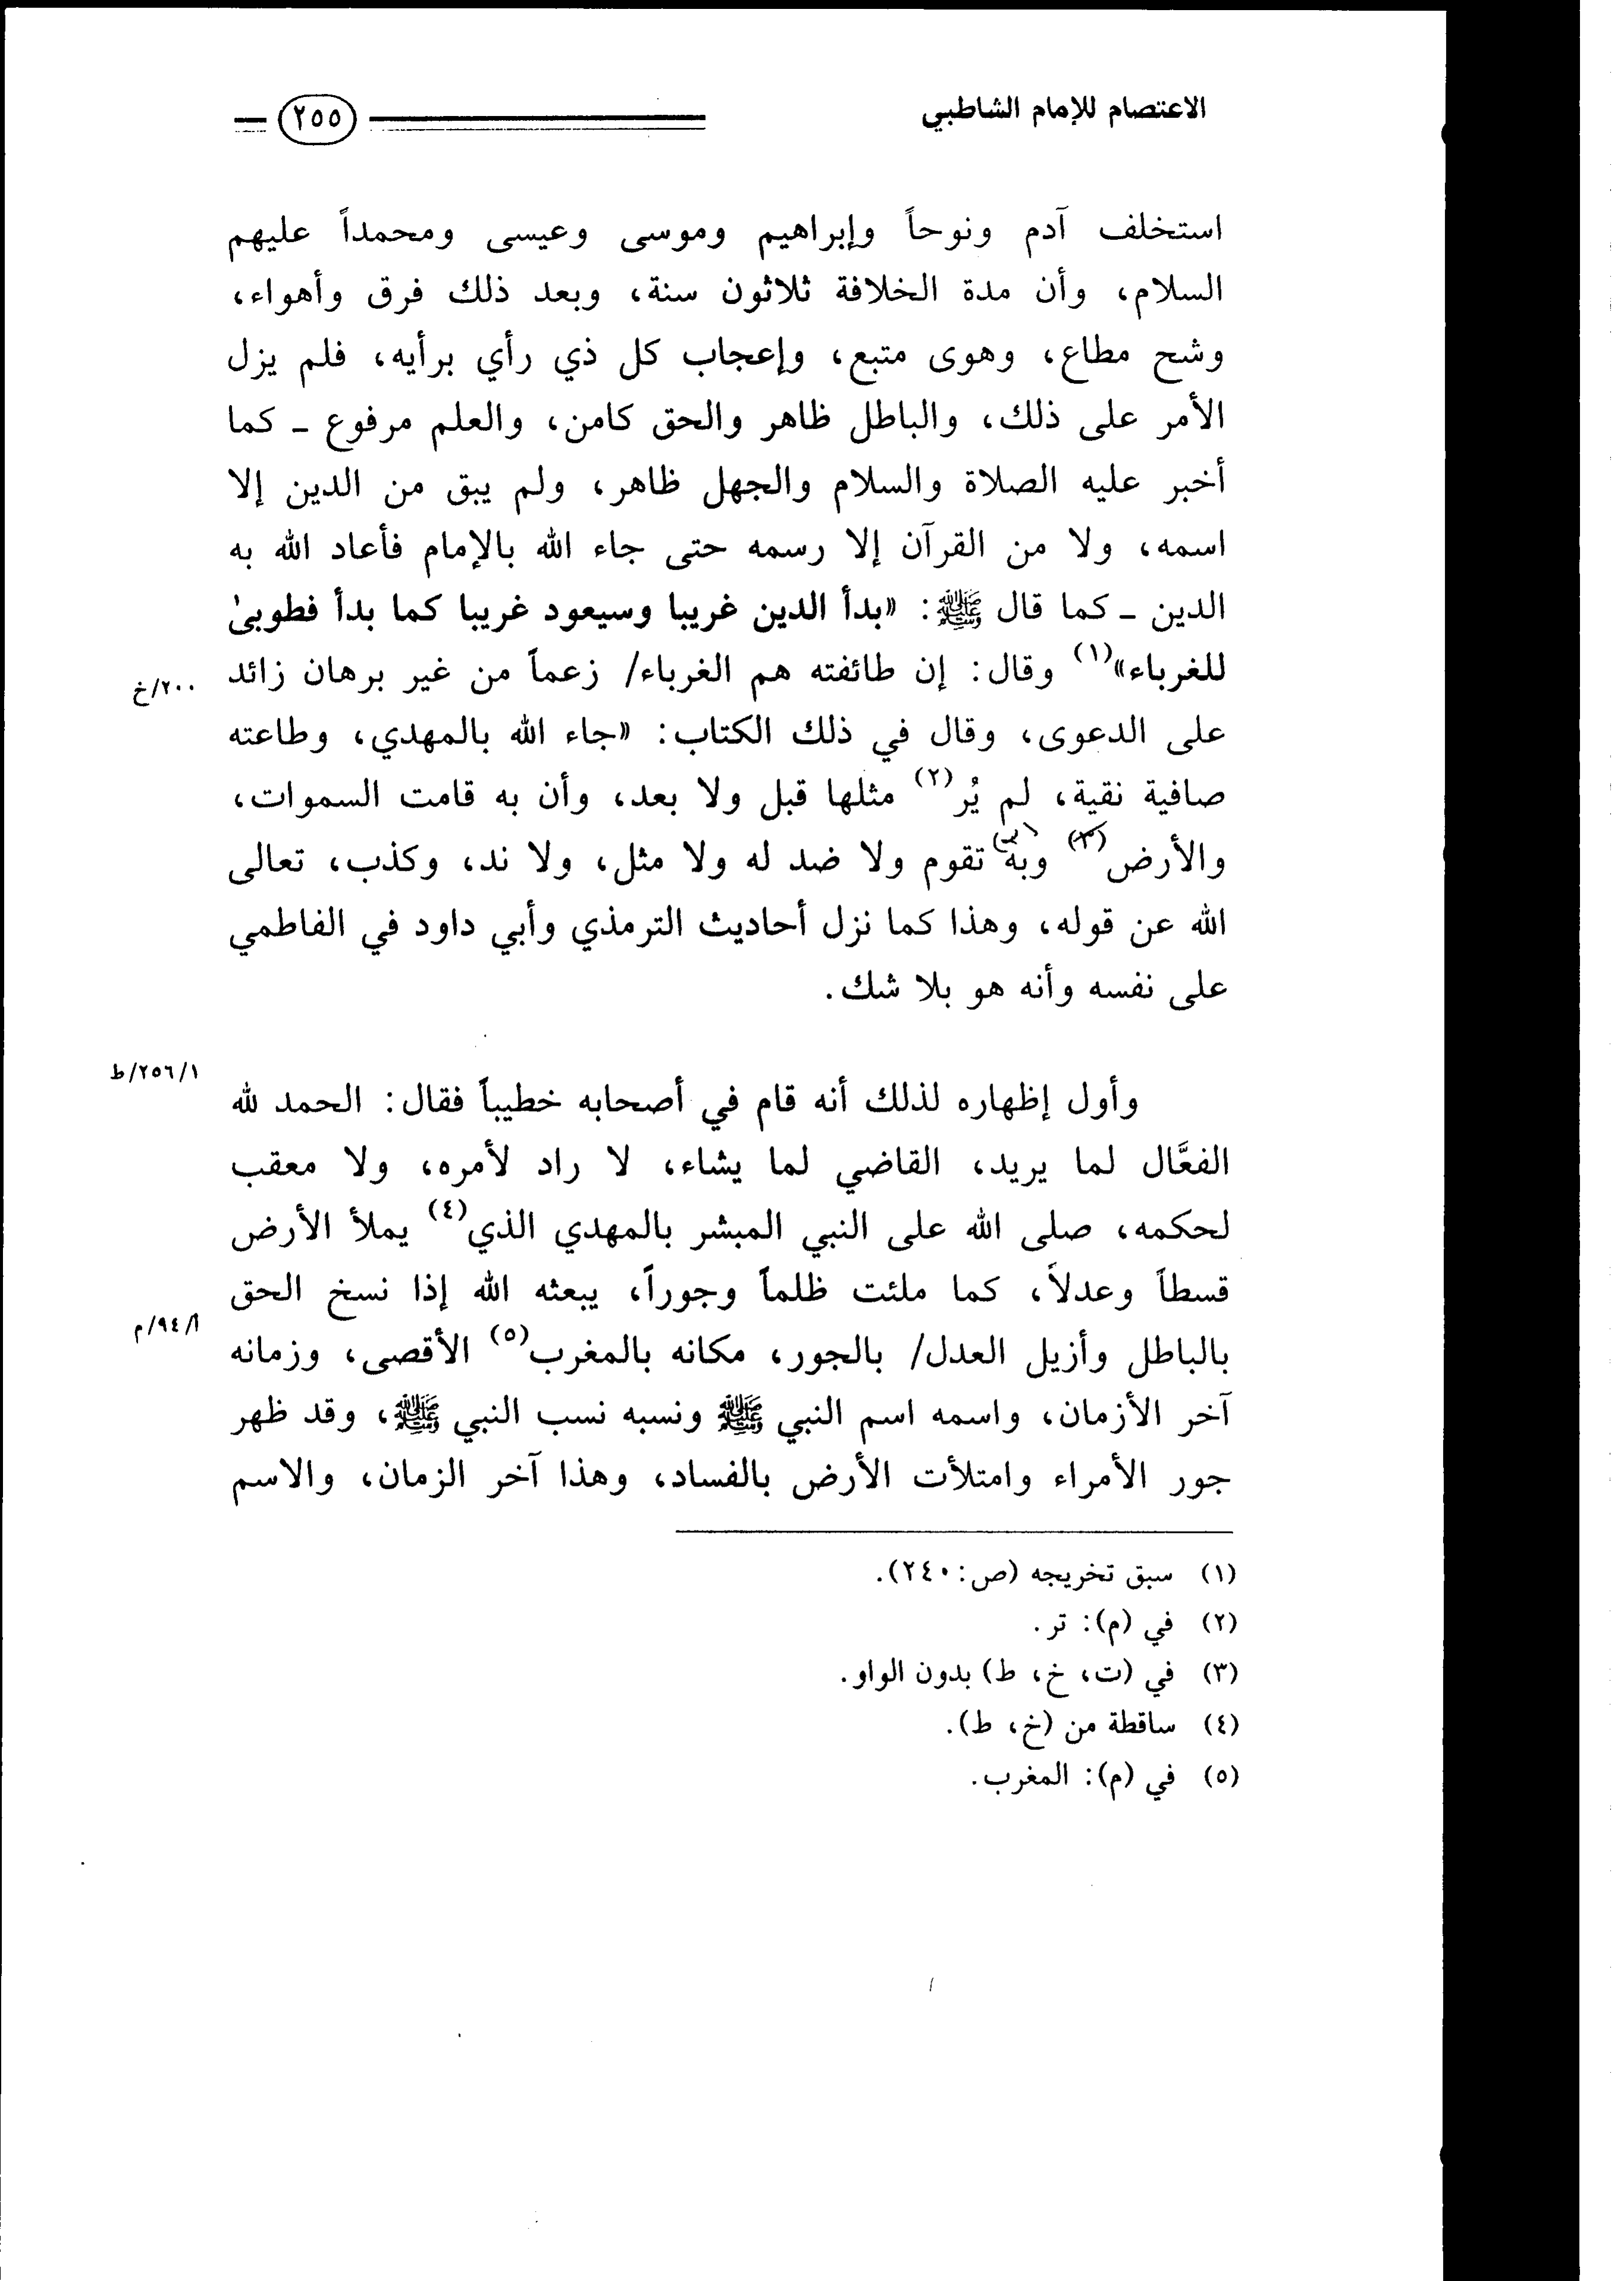 الاعتصام للإمام الشاطبي
٢٥٥
استخلف آدم ونوحاً وإبراهيم وموسى وعيسى ومحمداً عليهم
السلام، وأن مدة الخلافة ثلاثون سنة، وبعد ذلك فرق وأهواء،
وشح مطاع، وهوى متبع، وإعجاب كل ذي رأي برأيه، فلم يزل
الأمر على ذلك، والباطل ظاهر والحق كامن، والعلم مرفوع ـ كما
أخبر عليه الصلاة والسلام والجهل ظاهر، ولم يبق من الدين إلا
اسمه، ولا من القرآن إلا رسمه حتى جاء الله بالإمام فأعاد الله به
الدين ـ كما قال ﷺ: «بدأ الدين غريبا وسيعود غريبا كما بدأ فطوبىٰ
للغرباء»(١) وقال: إن طائفته هم الغرباء/ زعماً من غير برهان زائد
٢٠٠/خ
على الدعوى، وقال في ذلك الكتاب: «جاء الله بالمهدي، وطاعته
صافية نقية، لم يُر(٢) مثلها قبل ولا بعد، وأن به قامت السموات،
والأرض(٣) وبه(٣) تقوم ولا ضد له ولا مثل، ولا ند، وكذب، تعالى
الله عن قوله، وهذا كما نزل أحاديث الترمذي وأبي داود في الفاطمي
على نفسه وأنه هو بلا شك.
٢٥٦/١/ط
وأول إظهاره لذلك أنه قام في أصحابه خطيباً فقال: الحمد لله
الفعَّال لما يريد، القاضي لما يشاء، لا راد لأمره، ولا معقب
لحكمه، صلى الله على النبي المبشر بالمهدي الذي(٤) يملأ الأرض
قسطاً وعدلاً، كما ملئت ظلماً وجوراً، يبعثه الله إذا نسخ الحق
بالباطل وأزيل العدل/ بالجور، مكانه بالمغرب(٥) الأقصى، وزمانه
أ/٩٤/م
آخر الأزمان، واسمه اسم النبي ﷺ ونسبه نسب النبي ﷺ، وقد ظهر
جور الأمراء وامتلأت الأرض بالفساد، وهذا آخر الزمان، والاسم
(١) سبق تخريجه (ص: ٢٤٠).
(٢) في (م): تر.
(٣) في (ت، خ، ط) بدون الواو.
(٤) ساقطة من (خ، ط).
(٥) في (م): المغرب.